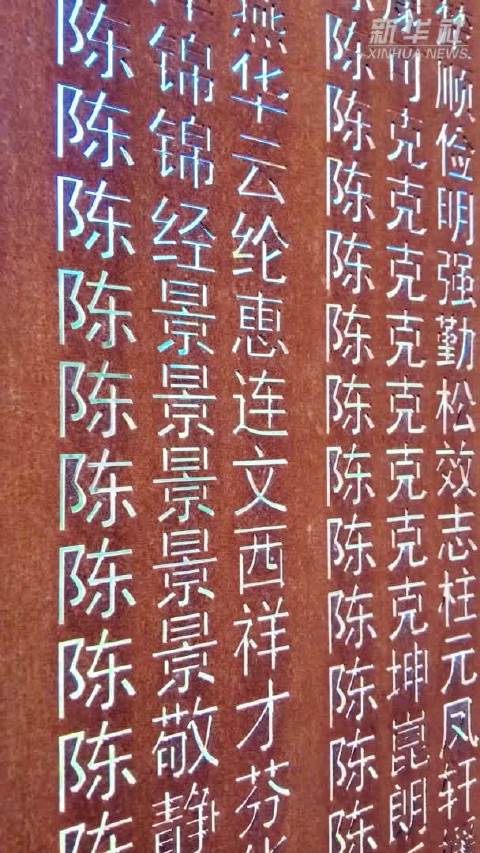 新华社
XINHUA NEWS
陈锦华
陈锦云
陈经纶
陈景惠
陈景连
陈景文
陈景西
陈景祥
陈敬才
陈静芬
陈可顺
陈克俭
陈克明
陈克强
陈克勤
陈克松
陈克效
陈克志
陈克柱
陈坤元
陈崑凤
陈朗轩